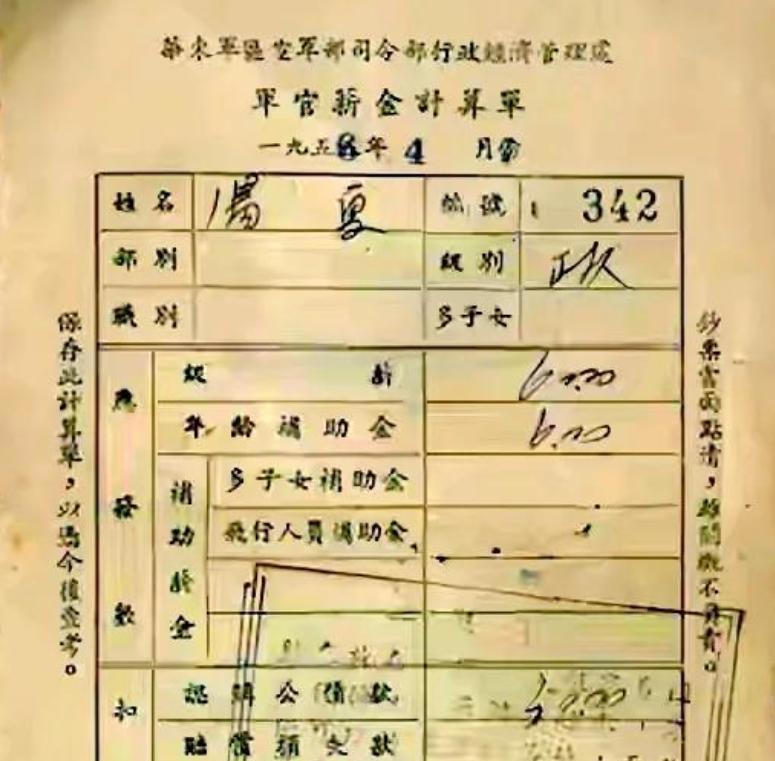 華東軍區空軍部司令部行政經濟管理處
軍官薪金計算單
一九五 年 4 月份
姓名 馮 夏 號 342
部別 級別 政
職別 多子女
保存此計算單,以爲今後查考。
鈔票當面點清,離開概不負責。
應發數
級 薪 60.00
年齡補助金 6.00
補助薪金
多子女補助金
飛行人員補助金
扣
認購公債款
賠償預支款